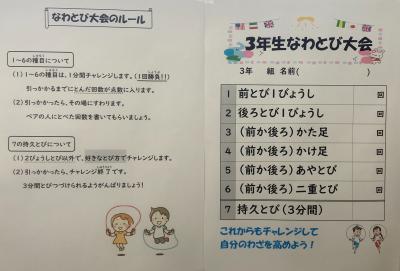 なわとび大会のルール
1~6の種目について
(1) 1~6の種目は、1分間チャレンジします。(1回勝負!!)
引っかかるまでにとんだ回数が点数に入ります。
(2) 引っかかったら、その場にすわります。
ペアの人にとべた回数を書いてもらいましょう。
7の持久とびについて
(1) 2びょうしとび以外で、好きなとび方でチャレンジします。
(2) 引っかかったら、チャレンジ終了です。
3分間とびつづけられるようがんばりましょう!
3年生なわとび大会
3年 組 名前( )
1 前とび1びょうし 回
2 後ろとび1びょうし 回
3 (前か後ろ)かた足 回
4 (前か後ろ)かけ足 回
5 (前か後ろ)あやとび 回
6 (前か後ろ)二重とび 回
7 持久とび(3分間)
これからもチャレンジして
自分のわざを高めよう!